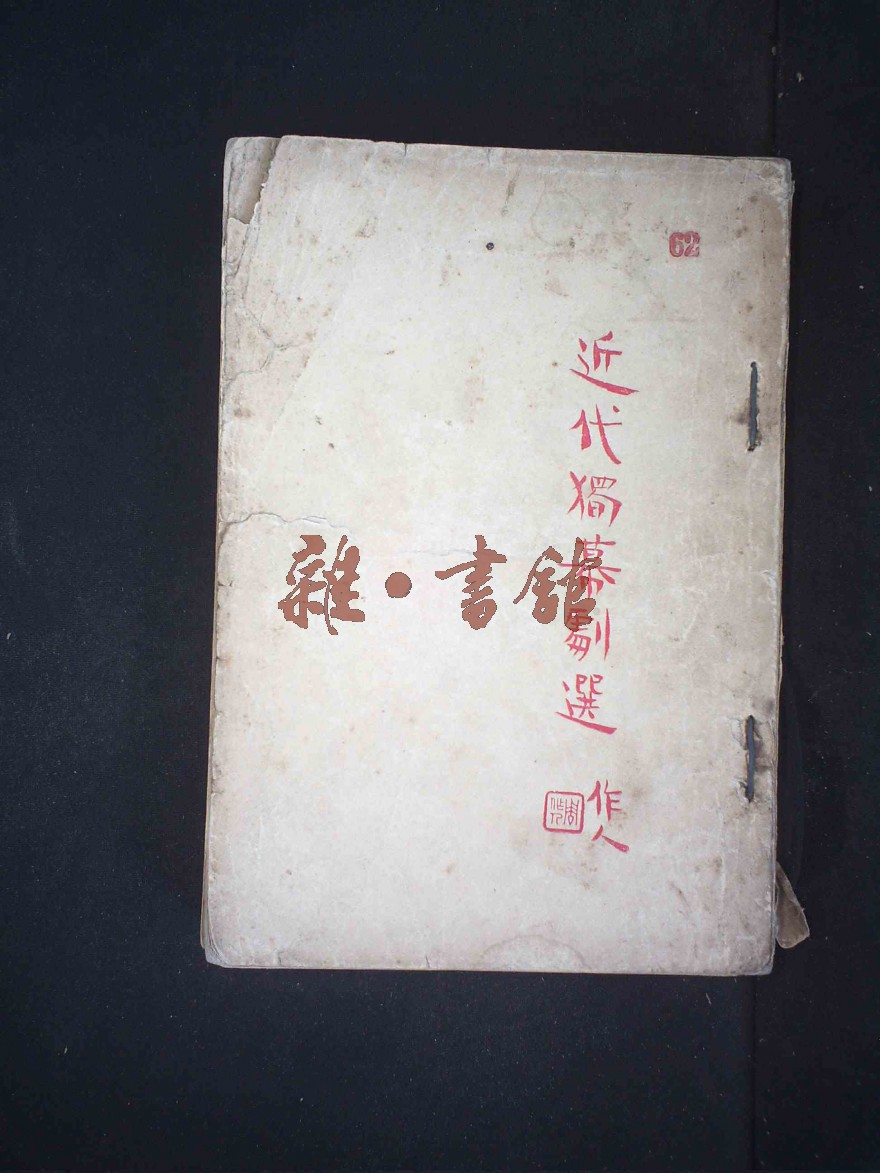 62
近代獨幕劇選
作人
周作人
雜·書館